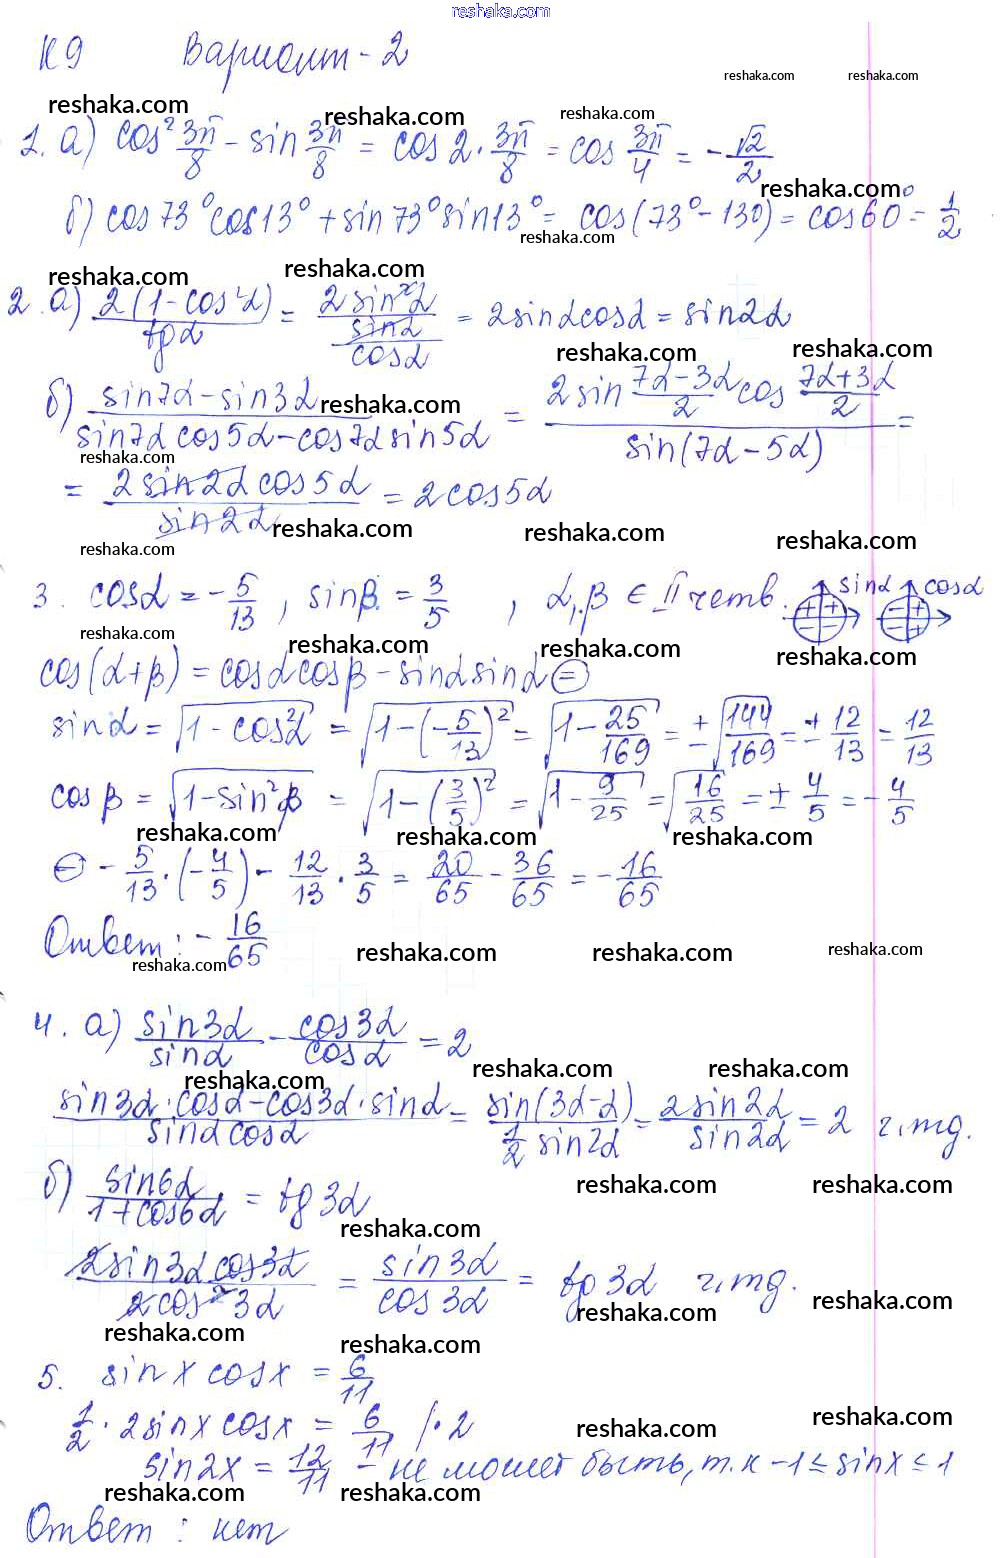 reshaka.com
К 9 Вариант - 2
reshaka.com reshaka.com
reshaka.com reshaka.com reshaka.com
1. а) cos² 3π/8 - sin 3π/8 = cos 2 · 3π/8 = cos 3π/4 = - √2/2
reshaka.com
б) cos 73° cos 13° + sin 73° sin 13° = cos(73° - 13°) = cos 60° = 1/2
reshaka.com
reshaka.com reshaka.com
2. а) 2(1 - cos²α)/tgα = 2 sin²α/(sinα/cosα) = 2 sinα cosα = sin 2α
reshaka.com reshaka.com
б) (sin 7α - sin 3α)/(sin 7α cos 5α - cos 7α sin 5α) = (2 sin (7α - 3α)/2 cos (7α + 3α)/2)/sin(7α - 5α) =
reshaka.com
reshaka.com
= 2 sin 2α cos 5α/sin 2α = 2 cos 5α
reshaka.com reshaka.com reshaka.com
reshaka.com
3. cosα = - 5/13 , sinβ = 3/5 , α,β ∈ II четв. sinα cosα
reshaka.com reshaka.com reshaka.com reshaka.com
cos(α + β) = cosα cosβ - sinα sinα =
sinα = √(1 - cos²α) = √(1 - (-5/13)²) = √(1 - 25/169) = ± √(144/169) = ± 12/13 = 12/13
cosβ = √(1 - sin²β) = √(1 - (3/5)²) = √(1 - 9/25) = √(16/25) = ± 4/5 = - 4/5
reshaka.com reshaka.com reshaka.com
= - 5/13 · (- 4/5) - 12/13 · 3/5 = 20/65 - 36/65 = - 16/65
Ответ: - 16/65
reshaka.com reshaka.com reshaka.com reshaka.com
4. а) sin 3α/sinα - cos 3α/cosα = 2
reshaka.com reshaka.com reshaka.com
(sin 3α · cosα - cos 3α · sinα)/(sinα cosα) = sin(3α - α)/(1/2 sin 2α) = 2 sin 2α/sin 2α = 2 ч.т.д.
reshaka.com reshaka.com
б) sin 6α/(1 + cos 6α) = tg 3α
reshaka.com
2 sin 3α cos 3α/2 cos² 3α = sin 3α/cos 3α = tg 3α ч.т.д.
reshaka.com reshaka.com
reshaka.com reshaka.com
5. sin x cos x = 6/11
reshaka.com reshaka.com
1/2 · 2 sin x cos x = 6/11 / · 2
sin 2x = 12/11 - не может быть, т.к -1 ≤ sin x ≤ 1
reshaka.com reshaka.com reshaka.com reshaka.com
Ответ: нет